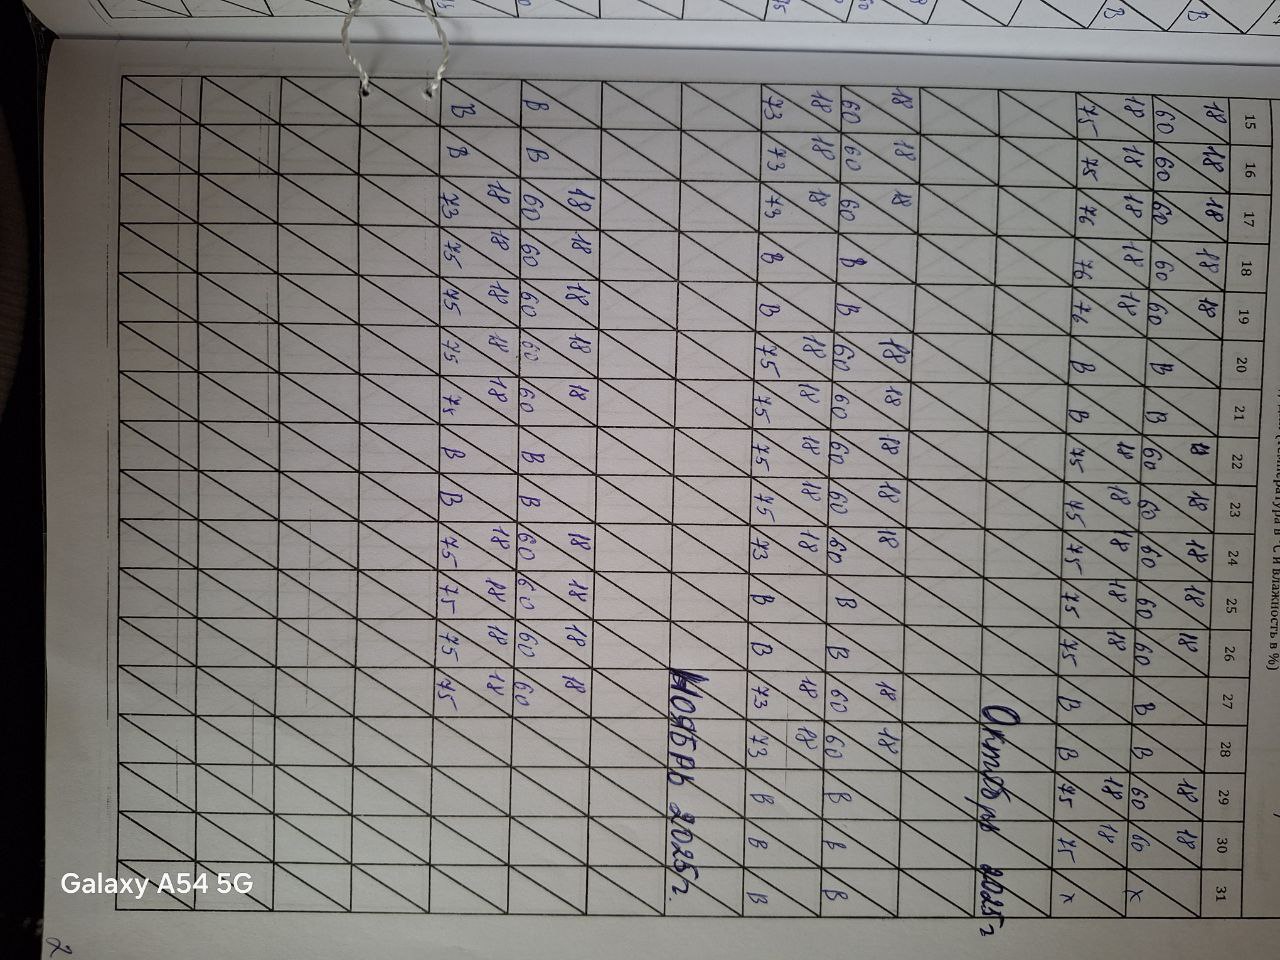 влажность в %)
15 16 17 18 19 20 21 22 23 24 25 26 27 28 29 30 31
18 18 18 18 18 18 18 18 18 18 18 18
60 60 60 60 60 В В 60 60 60 60 60 В В 60 60 х
18 18 18 18 18 18 18 18 18 18 18 18
75 75 76 76 76 В В 75 75 75 75 75 В В 75 75 х
Октябрь 2025 г
18 18 18 18 18 18 18 18 18 18
60 60 60 В В 60 60 60 60 60 В В 60 60 В В В
18 18 18 18 18 18 18 18 18 18
73 73 73 В В 75 75 75 75 73 В В 73 73 В В В
Ноябрь 2025 г.
18 18 18 18 18 18 18 18 18
В В 60 60 60 60 60 В В 60 60 60 60
18 18 18 18 18 18 18 18 18
В В 73 75 75 75 75 В В 75 75 75 75
2
Galaxy A54 5G